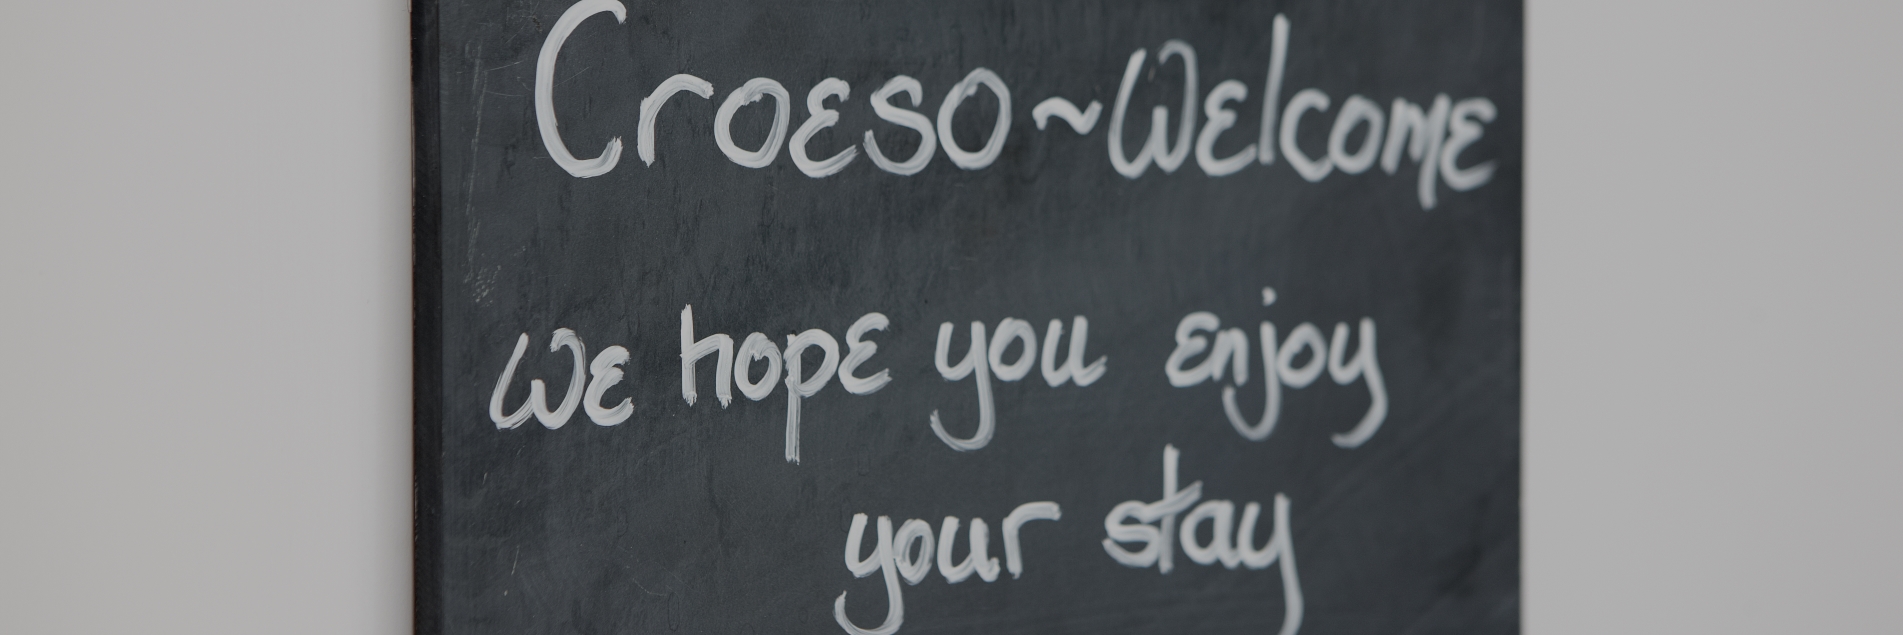 Croeso ~ Welcome
We hope you enjoy
your stay